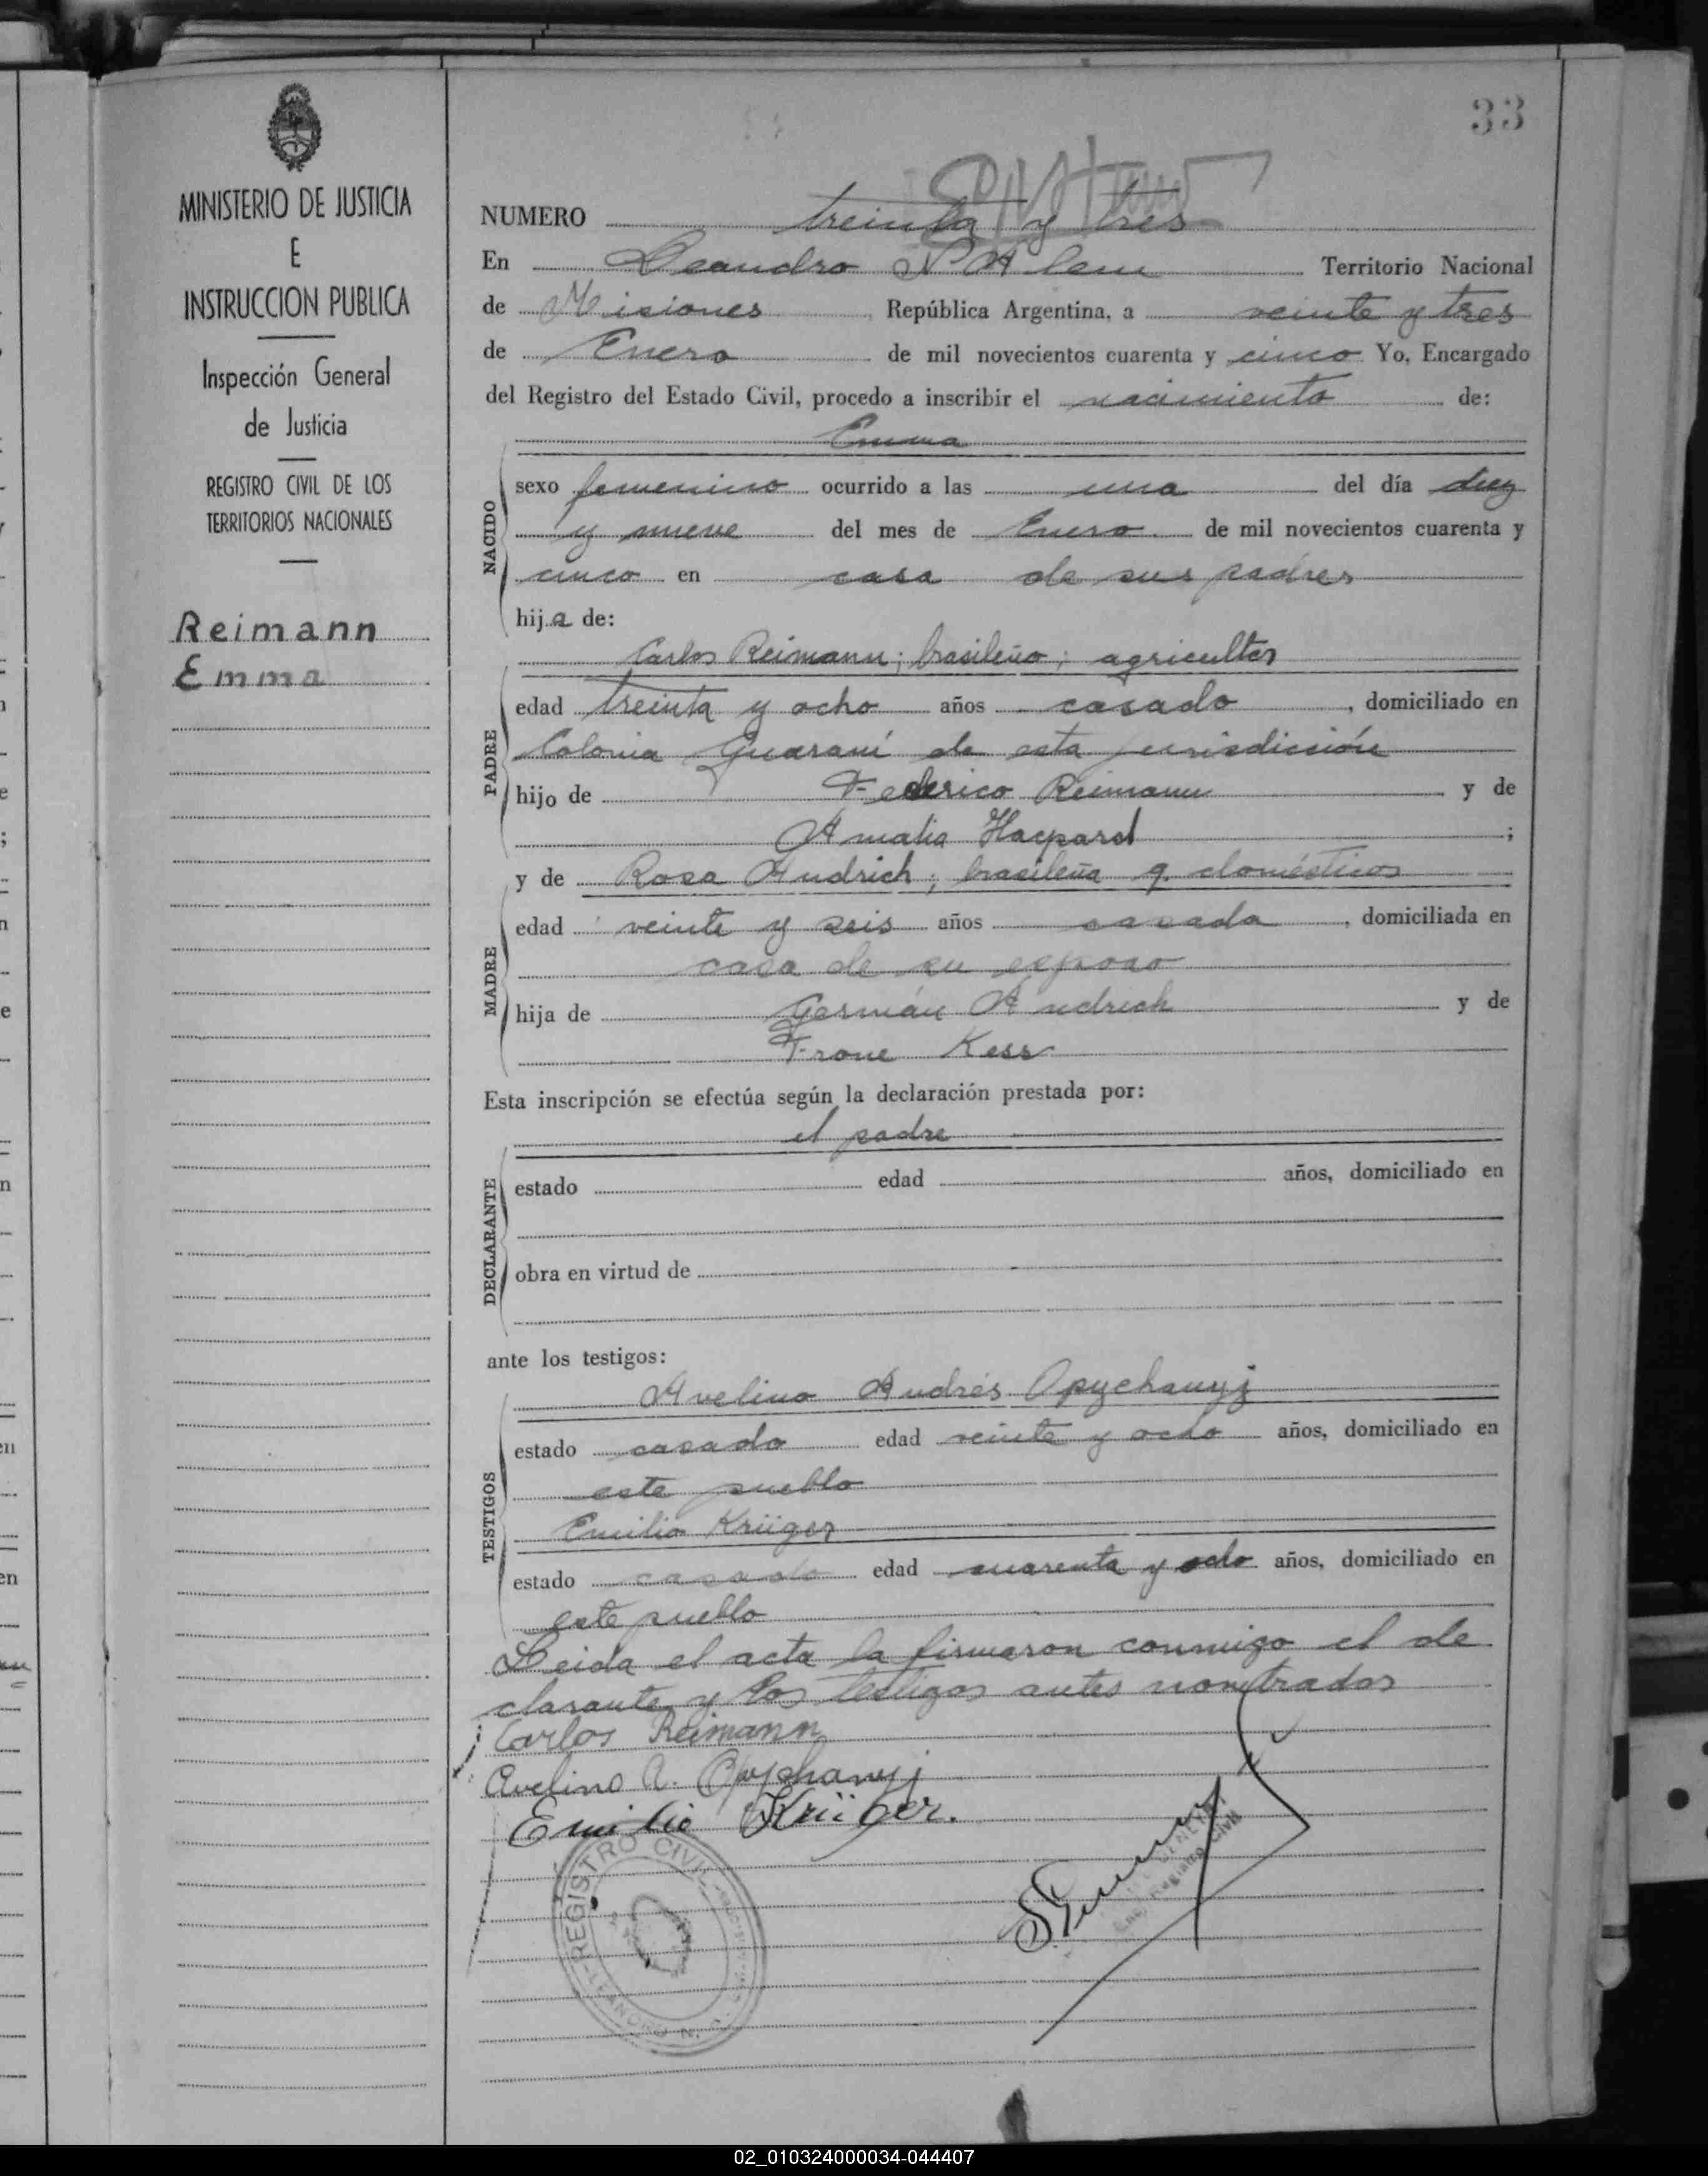 33
MINISTERIO DE JUSTICIA
E
INSTRUCCION PUBLICA
Inspección General
de Justicia
REGISTRO CIVIL DE LOS
TERRITORIOS NACIONALES
Reimann
Emma
NUMERO treinta y tres
En Leandro N Alem Territorio Nacional
de Misiones, República Argentina, a veinte y tres
de Enero de mil novecientos cuarenta y cinco Yo, Encargado
del Registro del Estado Civil, procedo a inscribir el nacimiento de:
Emma
NACIDO
sexo femenino ocurrido a las una del día diez
y nueve del mes de Enero de mil novecientos cuarenta y
cinco en casa de sus padres
hija de:
Carlos Reimann; brasileño; agricultor
PADRE
edad treinta y ocho años casado, domiciliado en
Colonia Guaraní de esta jurisdicción
hijo de Federico Reimann y de
Amalia ;
y de Rosa Andrich; brasileña q. domésticos
MADRE
edad veinte y seis años casada, domiciliada en
casa de su esposo
hija de Germán Andrich y de
Frone Kess
Esta inscripción se efectúa según la declaración prestada por:
el padre
DECLARANTE
estado edad años, domiciliado en
obra en virtud de
ante los testigos:
Avelino Andrés Opychanyj
TESTIGOS
estado casado edad veinte y ocho años, domiciliado en
este pueblo
Emilio Krüger
estado casado edad cuarenta y ocho años, domiciliado en
este pueblo
Leida el acta la firmaron conmigo el de
clarante y los testigos antes nombrados
Carlos Reimann
Avelino A. Opychanyj
Emilio Krüger.
REGISTRO CIVIL
LEANDRO N.
Registro Civil
02_010324000034-044407